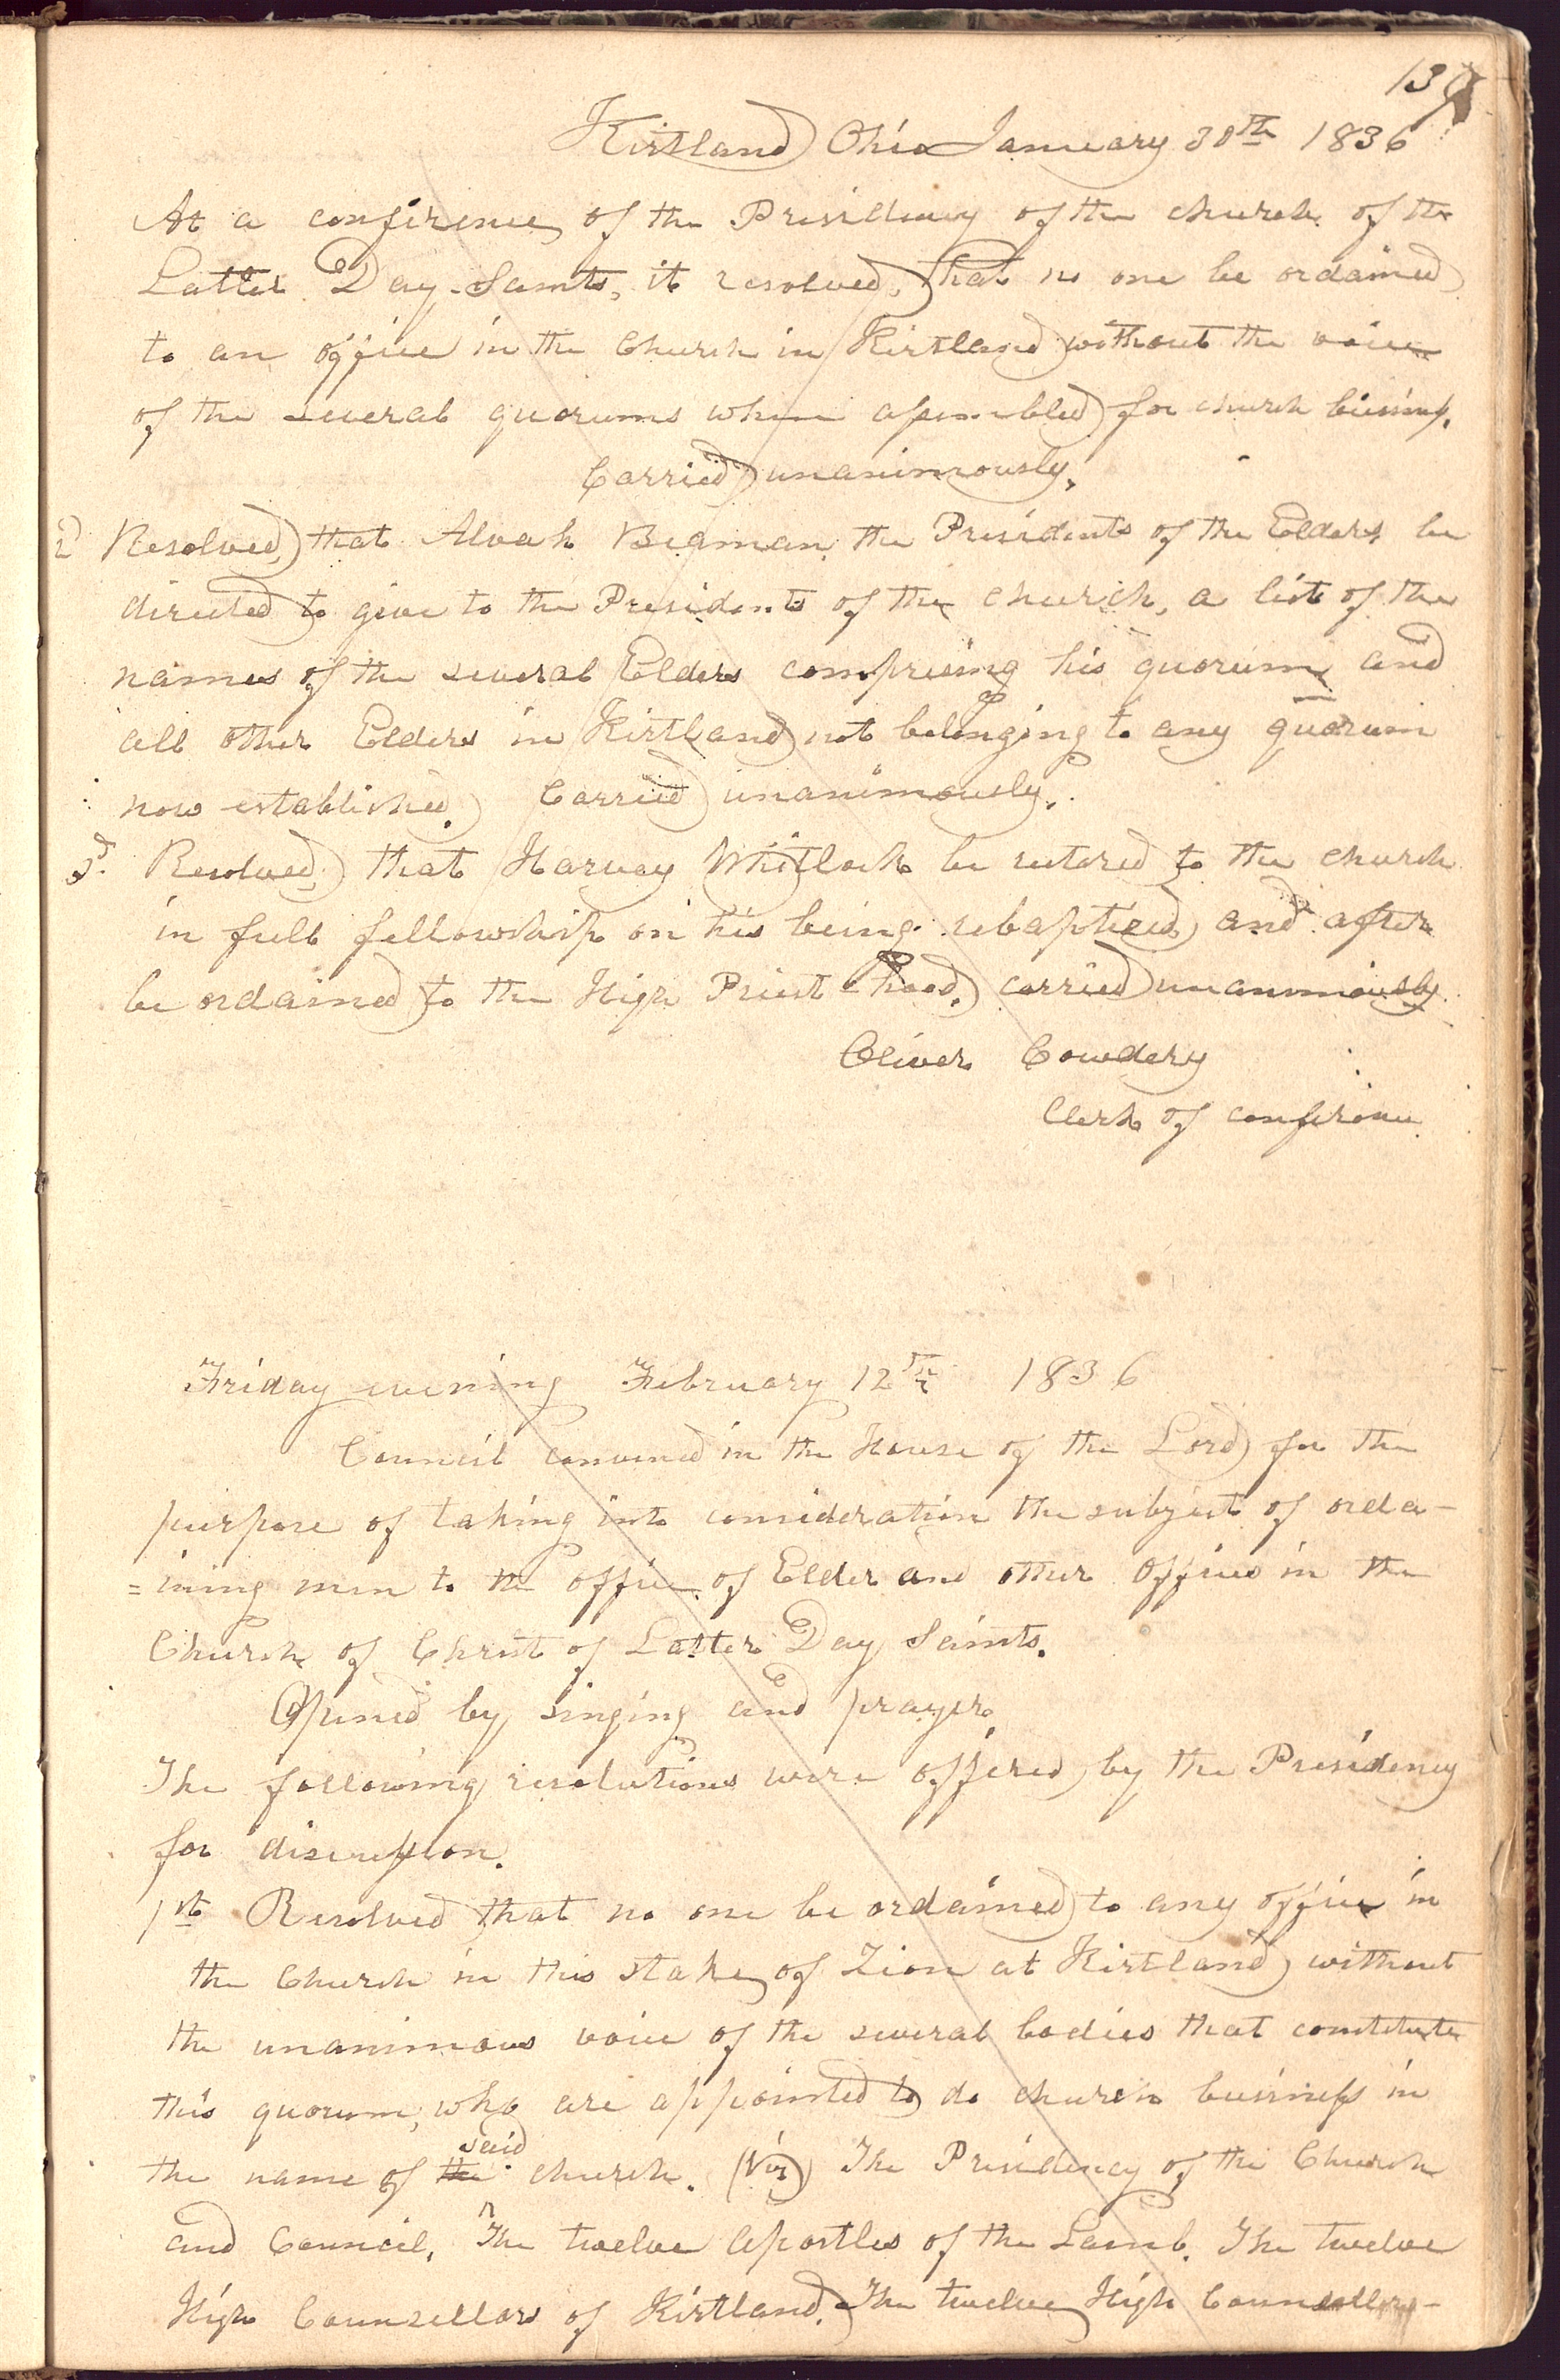 139
Kirtland Ohio January 30th 1836
At a conference of the Presidency of the church of the
Latter Day Saints, it resolved, that no one be ordained
to an office in the Church in Kirtland without the voice
of the several quorums when assembled for church business.
Carried unanimously.
2d Resolved, that Alvah Beaman the Presidents of the Elders be
directed to give to the Presidents of the church, a list of the
names of the several Elders comprising his quorum, and
all other Elders in Kirtland not belonging to any quorum
now established. Carried unanimously.
3d. Resolved, that Harvey Whitlock be restored to the church
in full fellowship on his being rebaptized, and after
be ordained to the High Priest-hood. carried unanimously.
Oliver Cowdery
Clerk of conference
Friday evening February 12th 1836
Council convened in the House of the Lord for the
purpose of taking into consideration the subject of orda-
=ining men to the office of Elder and other offices in the
Church of Christ of Latter Day Saints.
Opened by singing and prayer.
The following resolutions were offered by the Presidency
for discussion.
1st Resolved that no one be ordained to any office in
the Church in this stake of Zion at Kirtland, without
the unanimous voice of the several bodies that constitute
this quorum, who are appointed to do church business in
the name of the said church. (Viz) The Presidency of the Church
and Council, The twelve Apostles of the Lamb. The twelve
High Counsellors of Kirtland. The twelve High Counsellors-